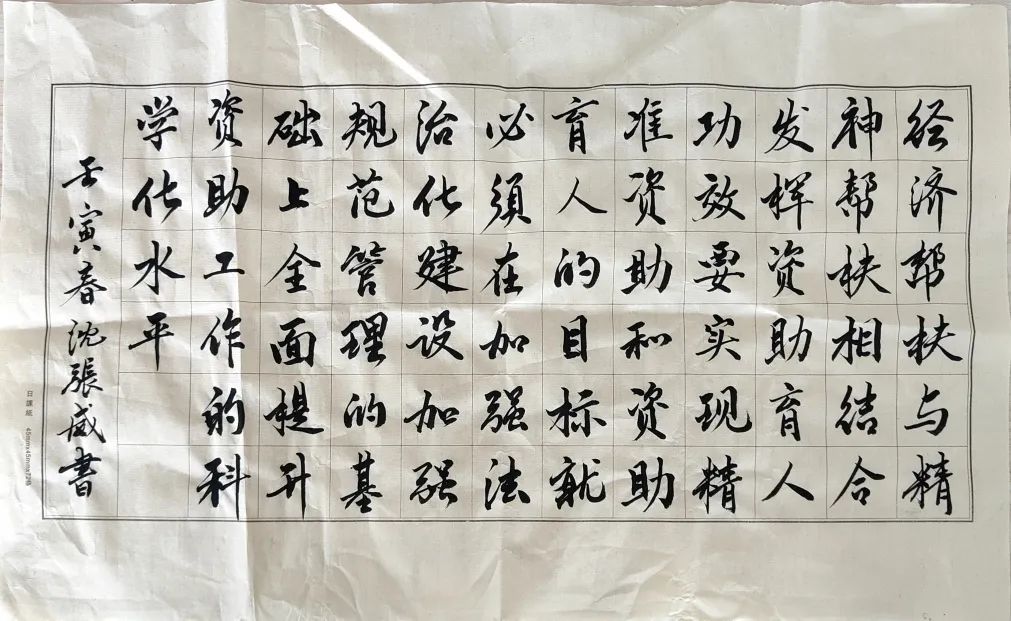 经济帮扶与精
神帮扶相结合
发挥资助育人
功效要实现精
准资助和资助
育人的目标就
必须在加强法
治化建设加强
规范管理的基
础上全面提升
资助工作的科
学化水平
壬寅春沈張威書
日課紙 45mm×45mm